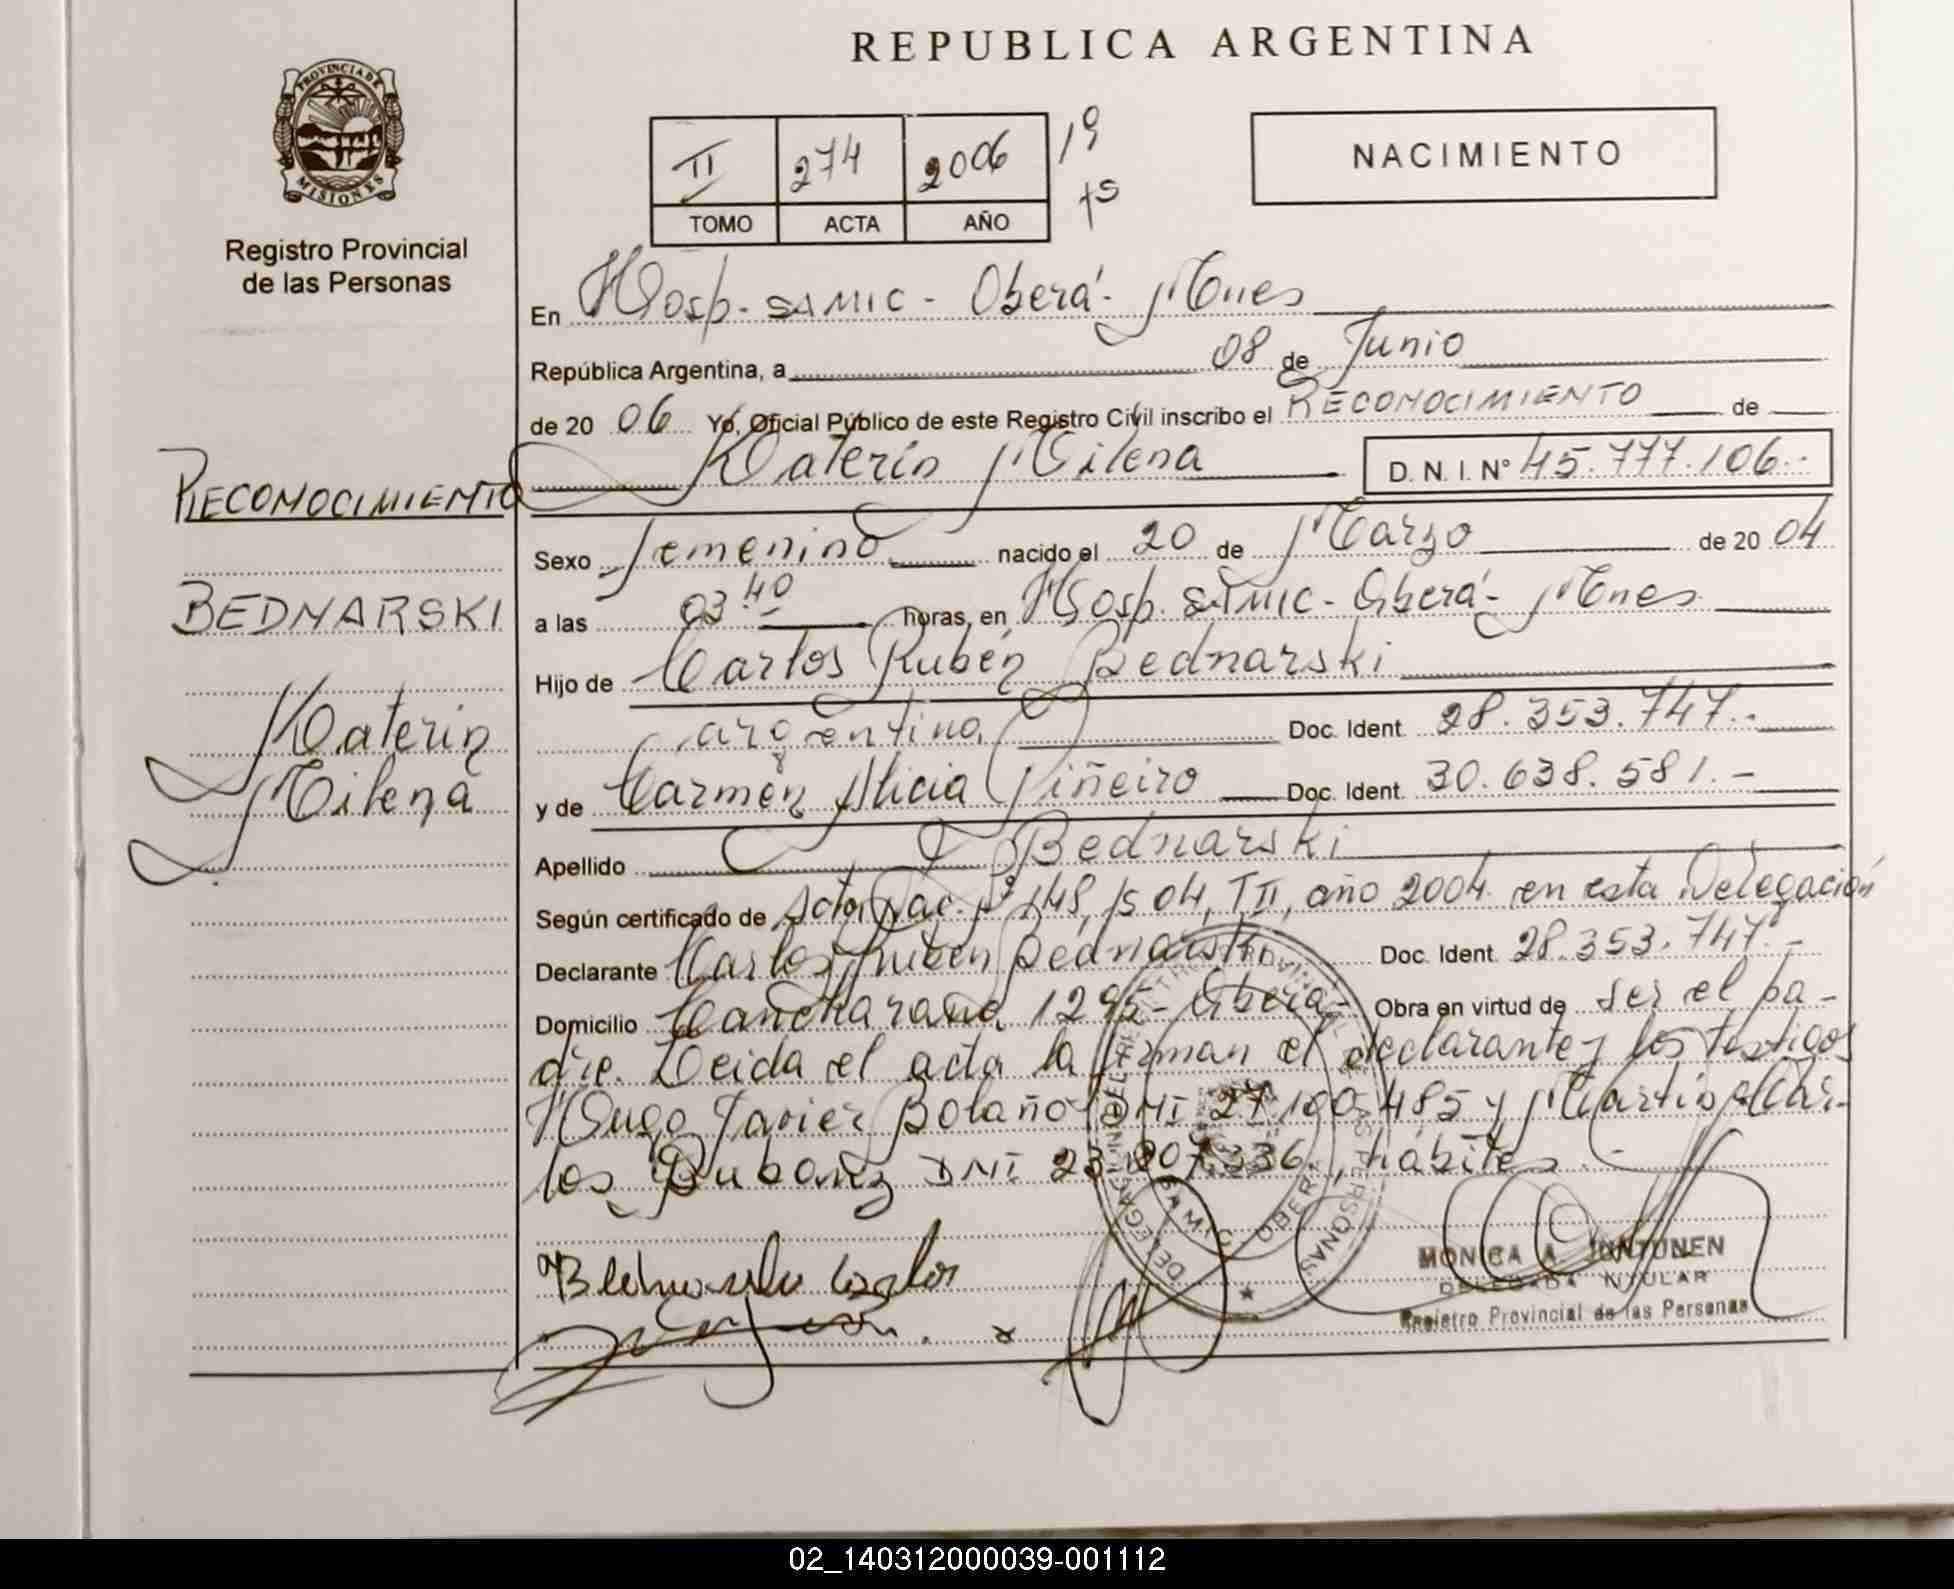 REPUBLICA ARGENTINA
PROVINCIA DE
MISIONES
Registro Provincial
de las Personas
II 274 2006 1º
TOMO ACTA AÑO
NACIMIENTO
En Hosp. SAMIC - Oberá - Mnes
República Argentina, a 08 de Junio
de 20 06 Yo, Oficial Público de este Registro Civil inscribo el RECONOCIMIENTO de
Katerin Milena D. N. I. Nº 45.777.106.-
RECONOCIMIENTO
Sexo femenino nacido el 20 de Marzo de 20 04
BEDNARSKI
a las 03 40 horas, en Hosp. SAMIC - Oberá - Mnes
Hijo de Carlos Rubén Bednarski
Katerin
argentino Doc. Ident. 28.353.747.-
Milena
y de Carmen Alicia Piñeiro Doc. Ident. 30.638.581.-
Apellido Bednarski
Según certificado de Acta Nac. Nº 148, 04, TII, año 2004 en esta Delegación
Declarante Carlos Rubén Bednarski Doc. Ident. 28.353.747.-
Domicilio 1295 - Oberá - Obra en virtud de ser el pa-
dre. Leida el acta la firman el declarante y los testigos
Hugo Javier Bolaño DNI 27.100.485 y Martin Car-
los DNI 336, hábiles.-
DELEGACION
S.A.M.I.C. OBERA
PERSONAS
Carlos
MONICA A.
DELEGADA TITULAR
Registro Provincial de las Personas
02_140312000039-001112